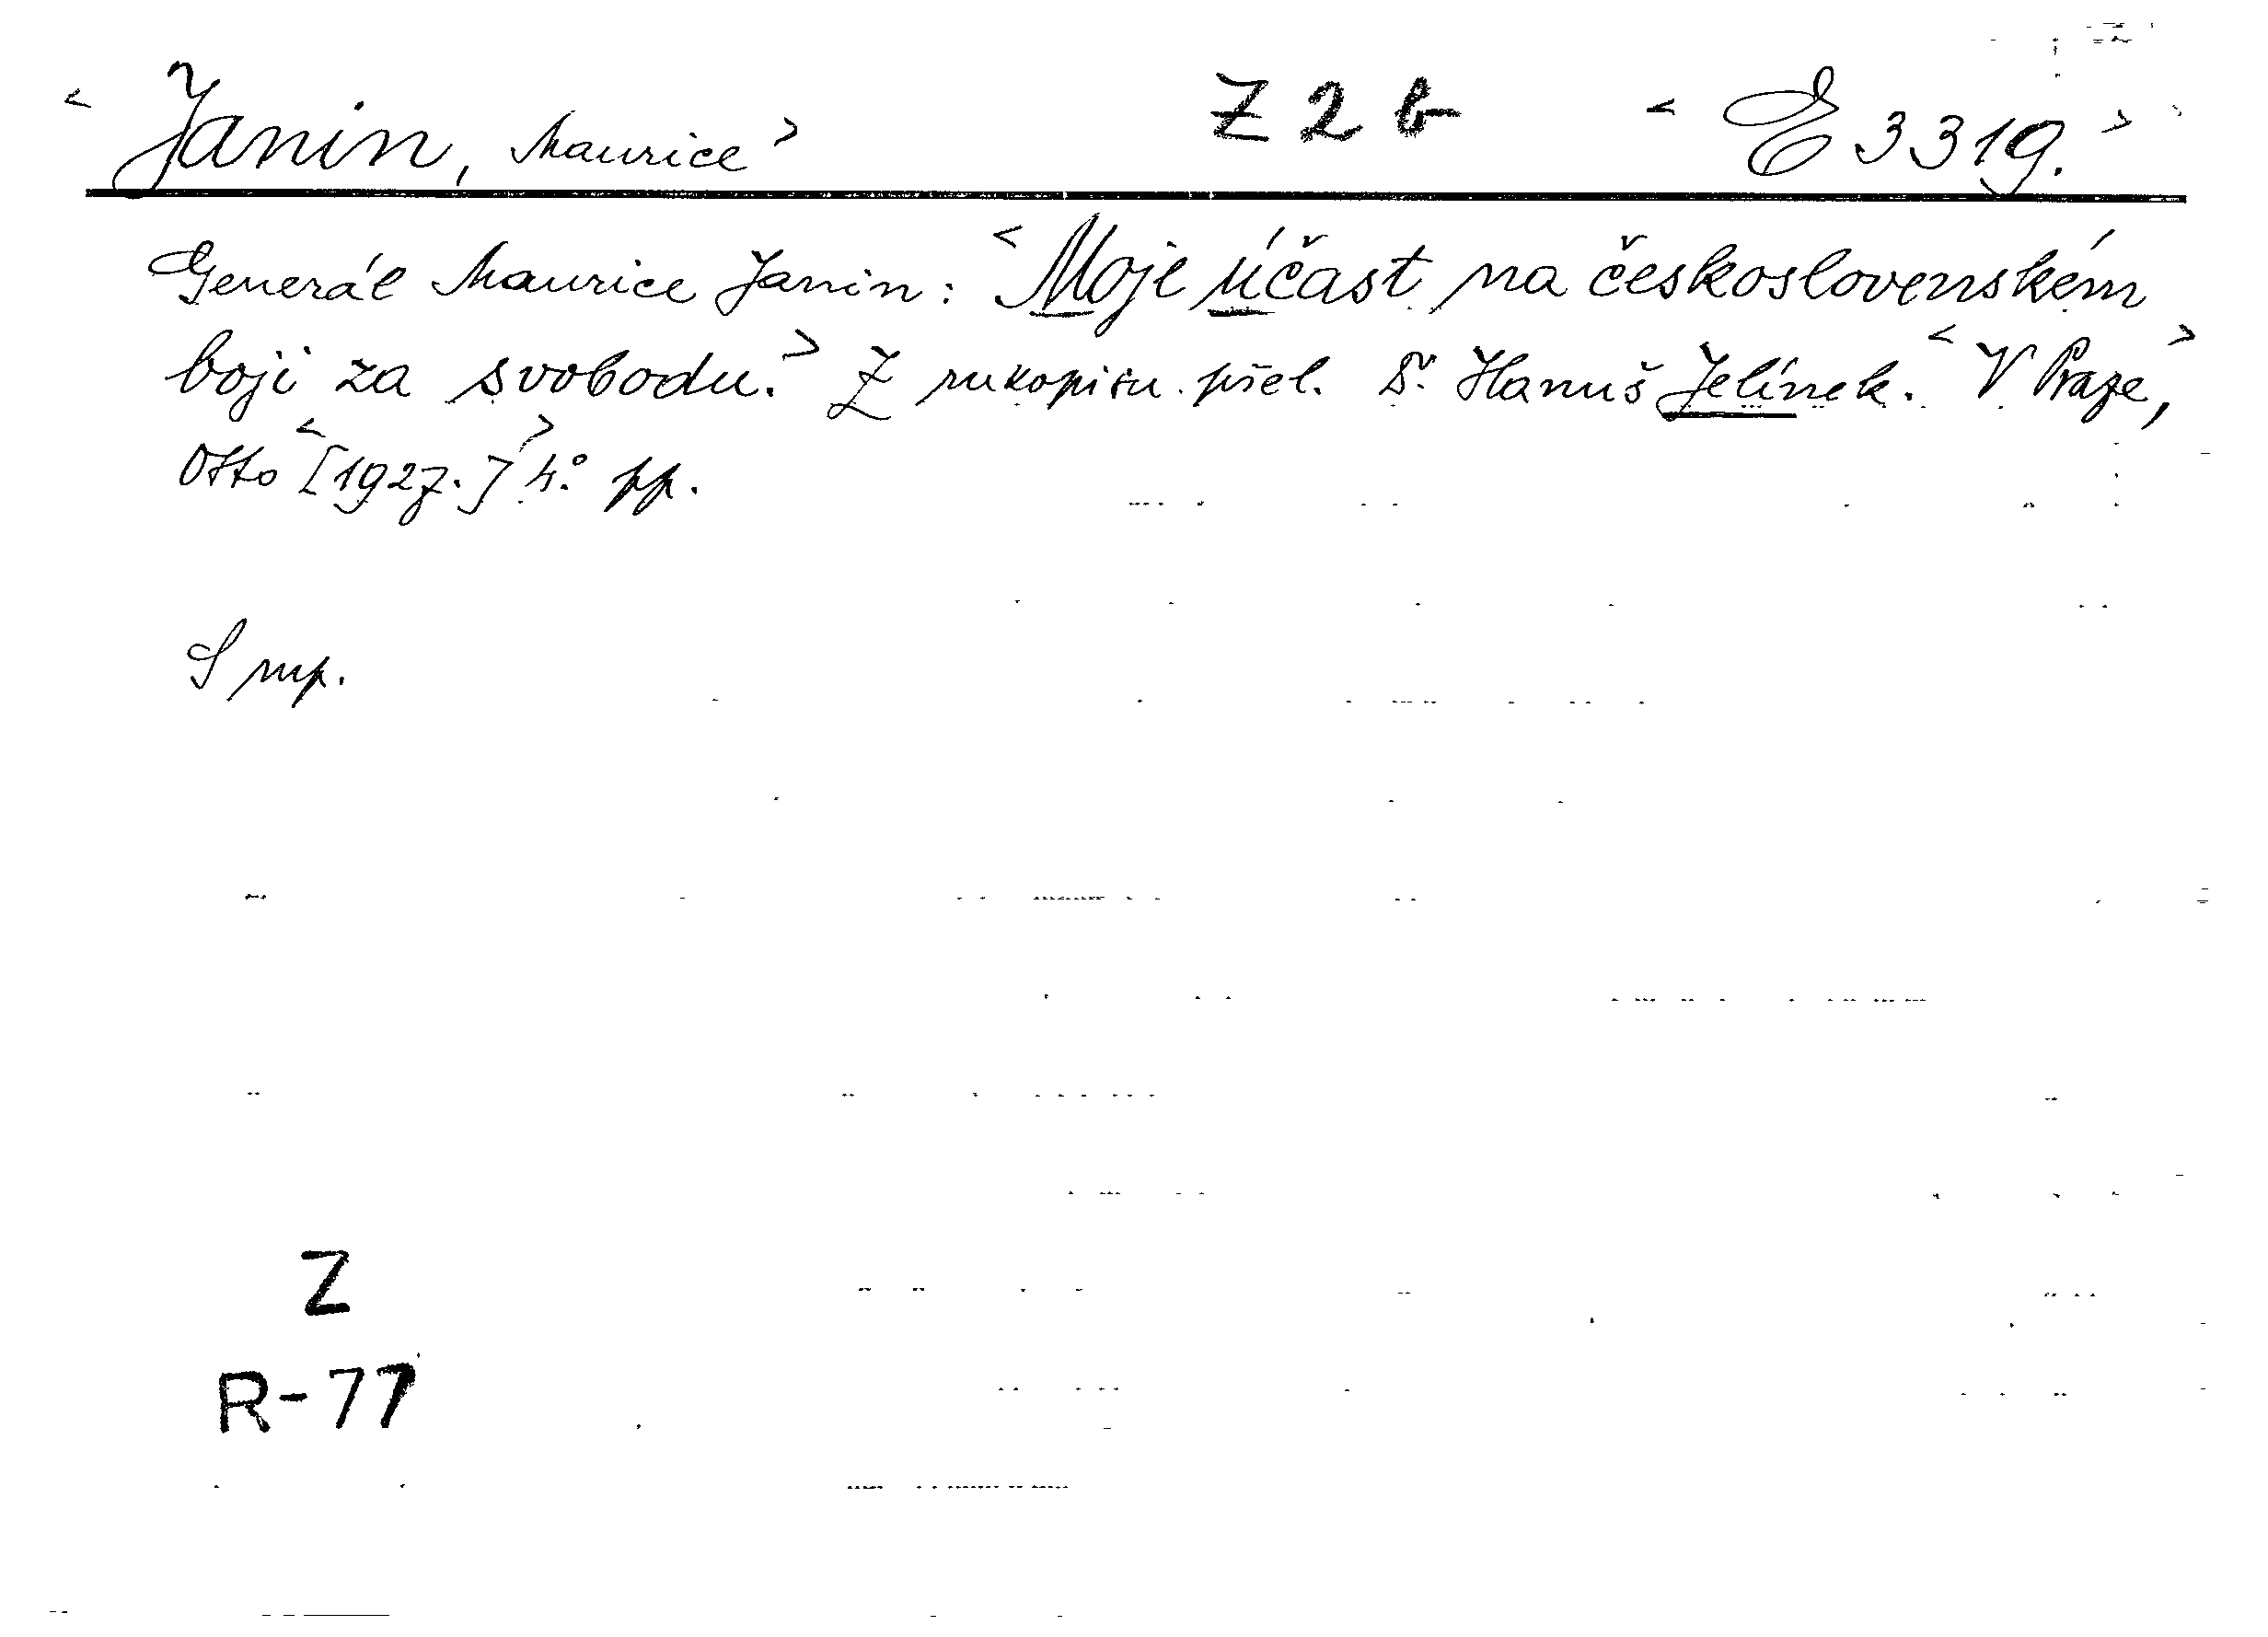 < Janin, Maurice > Z 2 b < E 3319. >
Generál Maurice Janin: < Moje účast na československém
boji za svobodu. > Z rukopisu přel. Dr. Hanuš Jelínek. < V Praze, >
Otto < [1927.] > 4° pp.
S mp.
Z
R-77